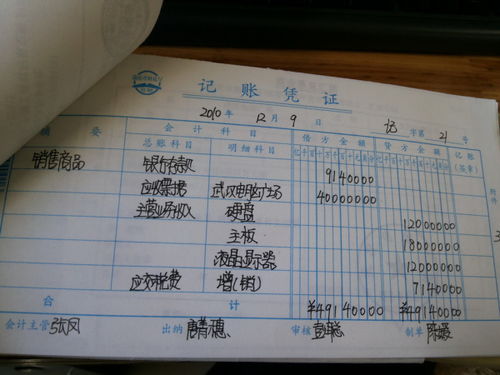 记账凭证
2010年 12月 9日 记字第 21 号
摘要 会计科目 借方金额 贷方金额 记账
总账科目 明细科目 (签章)
销售商品 银行存款 9140000
应收票据 40000000
主营业务收入 硬盘 12000000
主板 18000000
液晶显示器 12000000
应交税费 增(销) 7140000
合计 ¥49140000 ¥49140000
会计主管 张凤 出纳 审核 制单